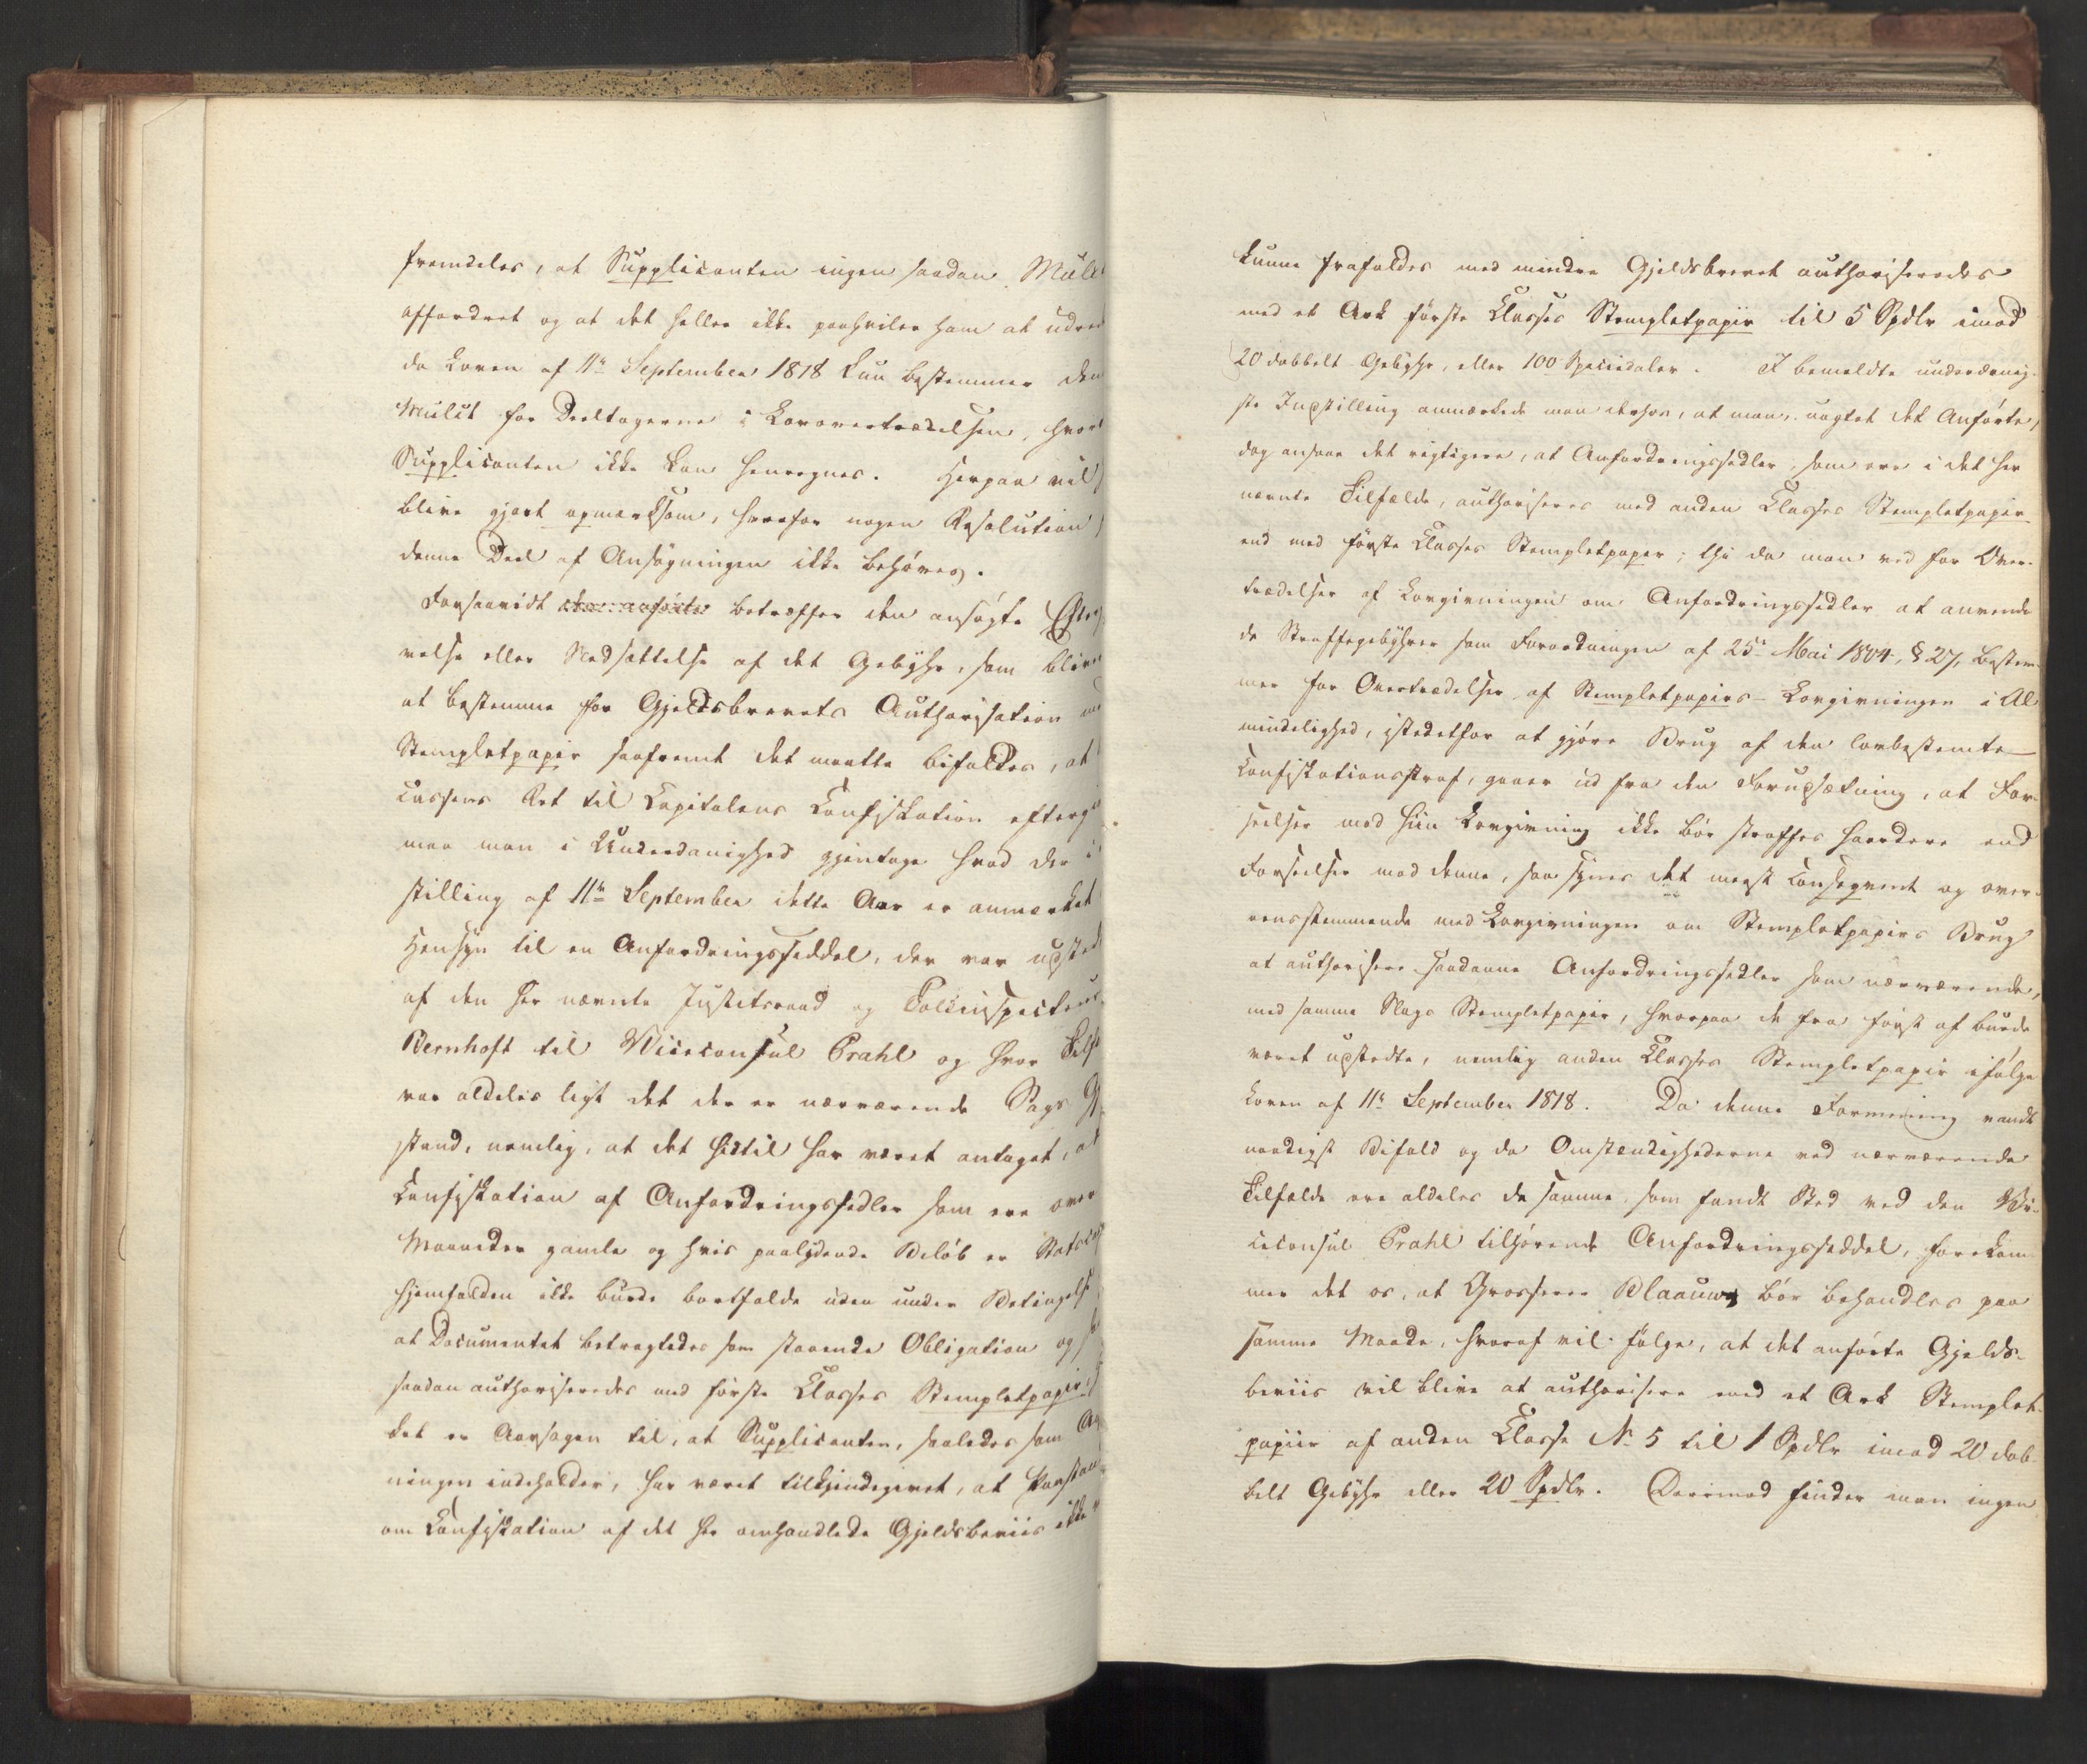 fremdeles, at Supplicanten ingen saadan Mulct
affordret og at det heller ikke paahviler ham at udrede
da Loven af 11te September 1818 kun bestemmer den
Mulct for Deeltagerne i Lovovertrædelsen, hvortil
Supplicanten ikke kan henregnes. Herpaa vil
blive gjort opmærksom, hvorfor nogen Resolution
denne Deel af Ansøgningen ikke behøves.
Forsaavidt betræffer den ansøgte Efterg
velse eller Nedsættelse af det Gebyhr, som bliver
at bestemme for Gjeldsbrevets Authorisation med
Stempletpapir saafremt det maatte bifaldes, at
Cassens Ret til Capitalens Confiskation eftergi
maa man i Underdanighed gjentage hvad der i
stilling af 11te September dette Aar er anmærket
Hensyn til en Anfordringsseddel, der var udsted
af den her nævnte Justitsraad og Toldinspecteur
Bernhoft til Viceconsul Prahl og hvor Tilf
var aldeles ligt det der er nærværende Sags Gj
stand, nemlig, at det hidtil har været antaget, at
Confiskation af Anfordringssedler som ere over
Maaneder gamle og hvis paalydende Beløb er Statscas
hjemfalden ikke burde bortfalde uden under Betingelse
at Documentet betragtedes som staaende Obligation og so
saadan authoriseredes med første Classes Stempletpapir,
det er Aarsagen til, at Supplicanten, saaledes som An
ningen indeholder, har været tilkjendegivet, at Paastan
om Confiskation af det her omhandlede Gjeldsbeviis ikke
kunne frafaldes med mindre Gjeldsbrevet authoriseredes
med et Ark første Classes Stempletpapir til 5 Spdlr imod
20 dobbelt Gebyhr, eller 100 Speciedaler. I bemeldte underdanig-
ste Indstilling anmærkede man derhos, at man, uagtet det Anførte,
dog ansaae det rigtigere, at Anfordringssedler, som ere i det her
nævnte Tilfælde, authoriseres med anden Classes Stempletpapir
end med første Classes Stempletpapir; thi da man ved for Over-
trædelser af Lovgivningen om Anfordringssedler at anvende
de Straffegebyhrer som Forordningen af 25de Mai 1804, § 27, bestem-
mer for Overtrædelser af Stempletpapirs-Lovgivningen i Al-
mindelighed, istedetfor at gjøre Brug af den lovbestemte
Confiskationsstraf, gaaer ud fra den Forudsætning, at For-
seelser mod hiin Lovgivning ikke bør straffes haardere end
Forseelser mod denne, saa synes det meest consequent og over-
eensstemmende med Lovgivningen om Stempletpapirs Brug
at authorisere saadanne Anfordringssedler som nærværende,
med samme Slags Stempletpapir, hvorpaa de fra først af burde
været udstedte, nemlig anden Classes Stempletpapir ifølge
Loven af 11te September 1818. Da denne Formening vandt
naadigst Bifald og da Omstændighederne ved nærværende
Tilfælde ere aldeles de samme, som fandt Sted ved den Vi-
ceconsul Prahl tilhørende Anfordringsseddel, forekom-
mer det os, at Grosserer Blaauw bør behandles paa
samme Maade, hvoraf vil følge, at det anførte Gjelds-
beviis vil blive at authorisere med et Ark Stemplet-
papiir af anden Classe No 5 til 1 Spdlr imod 20 dob-
belt Gebyhr eller 20 Spdlr. Derimod finder man ingen